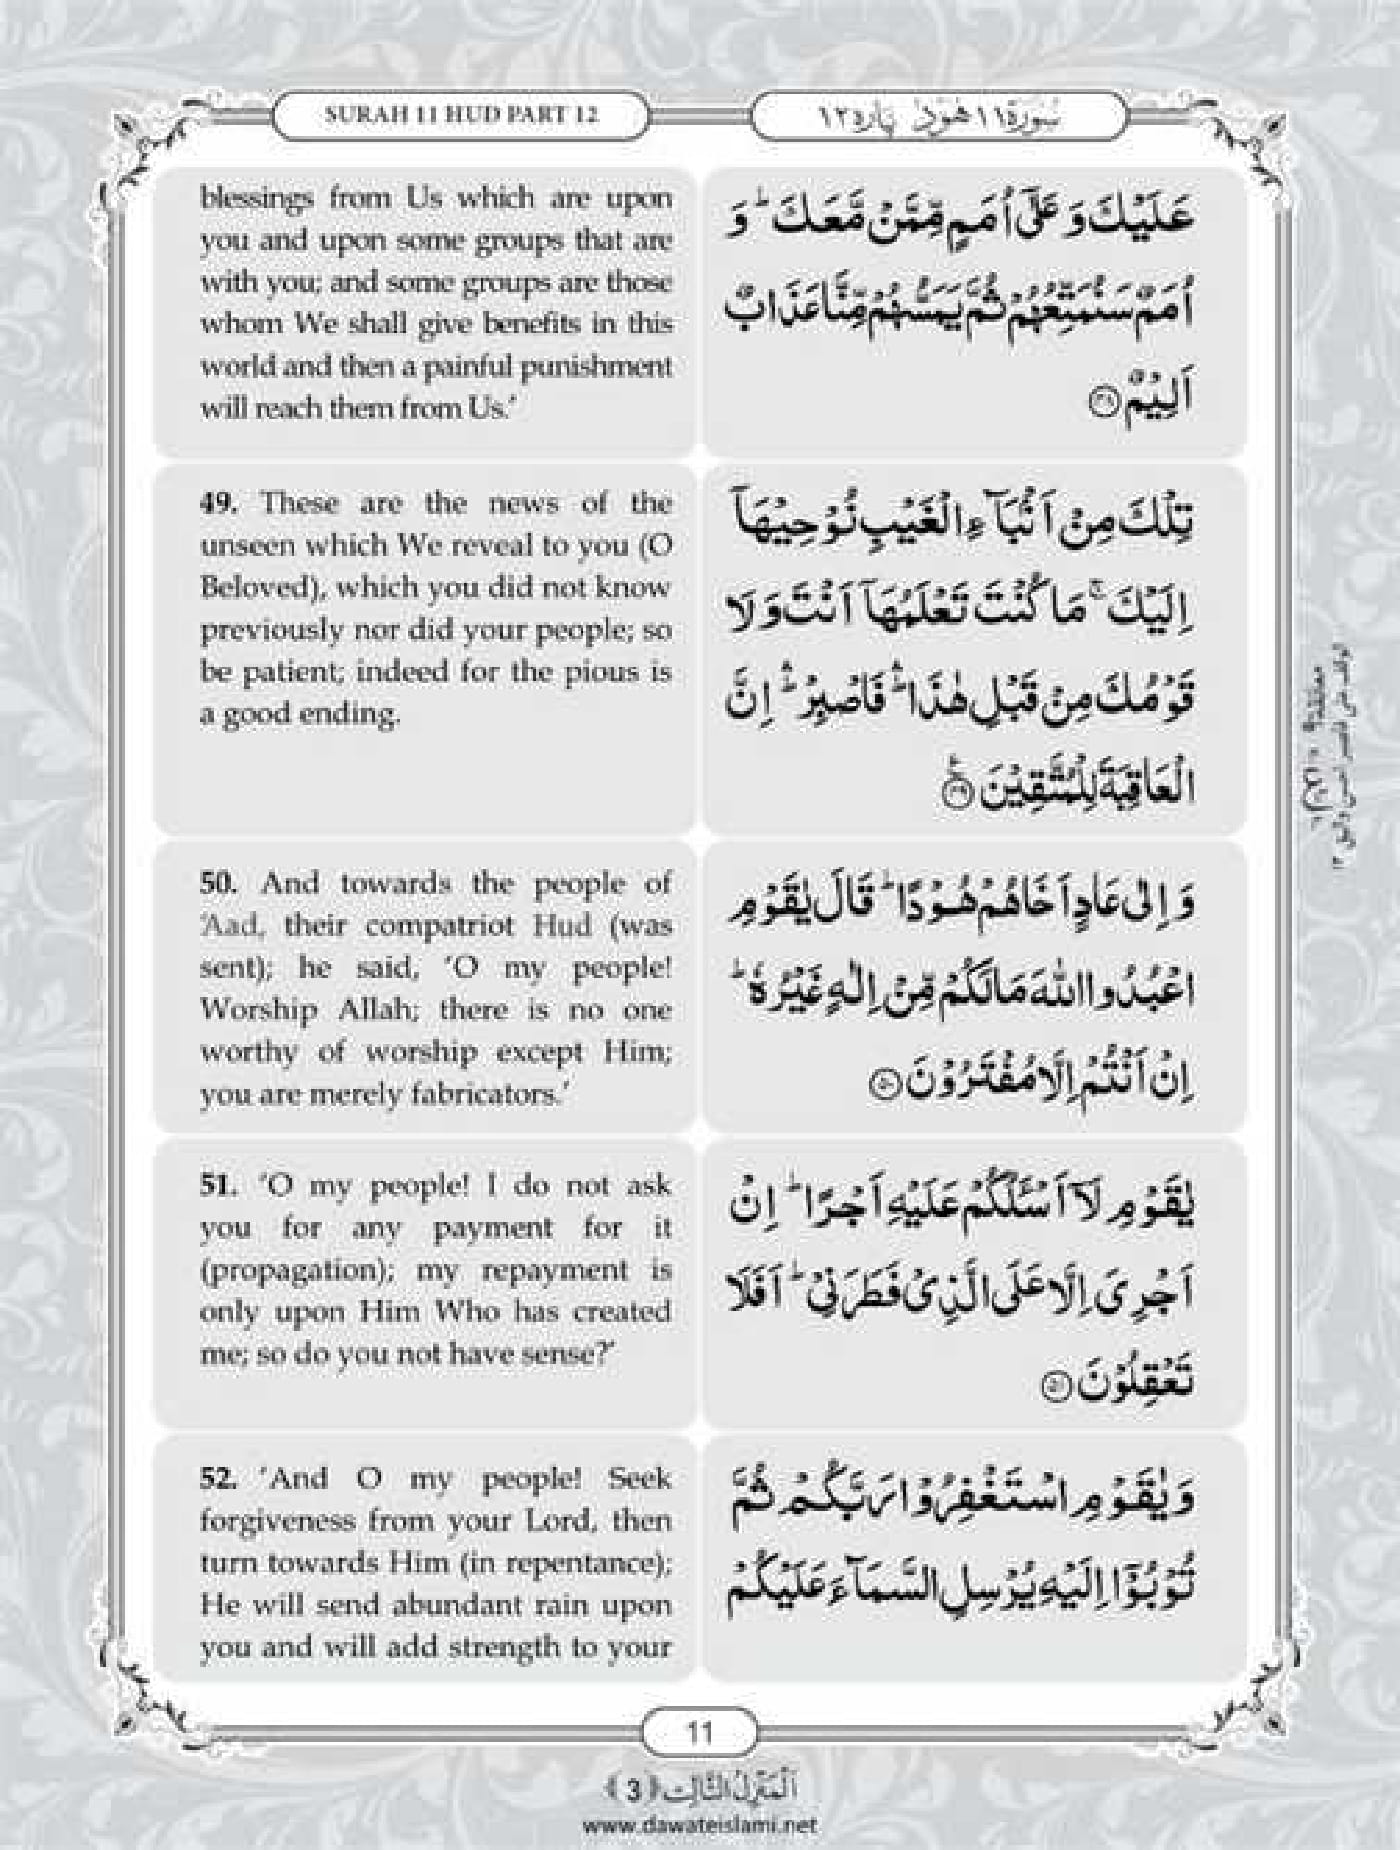 SURAH 11 HUD PART 12
سُوْرَة ١١ هُوْد پاره ١٢
blessings from Us which are upon
you and upon some groups that are
with you; and some groups are those
whom We shall give benefits in this
world and then a painful punishment
will reach them from Us.’
عَلَيْكَ وَ عَلٰۤى اُمَمٍ مِّمَّنْ مَّعَكَ ؕ وَ
اُمَمٌ سَنُمَتِّعُهُمْ ثُمَّ يَمَسُّهُمْ مِّنَّا عَذَابٌ
اَلِيْمٌ ﴿۴۸﴾
49. These are the news of the
unseen which We reveal to you (O
Beloved), which you did not know
previously nor did your people; so
be patient; indeed for the pious is
a good ending.
تِلْكَ مِنْ اَنْۢبَآءِ الْغَيْبِ نُوْحِيْهَاۤ
اِلَيْكَ ۚ مَا كُنْتَ تَعْلَمُهَاۤ اَنْتَ وَ لَا
قَوْمُكَ مِنْ قَبْلِ هٰذَا ۛؕ فَاصْبِرْ ۛؕ اِنَّ
الْعَاقِبَةَ لِلْمُتَّقِيْنَ ﴿۴۹﴾
50. And towards the people of
‘Aad, their compatriot Hud (was
sent); he said, ‘O my people!
Worship Allah; there is no one
worthy of worship except Him;
you are merely fabricators.’
وَ اِلٰى عَادٍ اَخَاهُمْ هُوْدًا ؕ قَالَ يٰقَوْمِ
اعْبُدُوا اللّٰهَ مَا لَكُمْ مِّنْ اِلٰهٍ غَيْرُهٗ ؕ
اِنْ اَنْتُمْ اِلَّا مُفْتَرُوْنَ ﴿۵۰﴾
51. ‘O my people! I do not ask
you for any payment for it
(propagation); my repayment is
only upon Him Who has created
me; so do you not have sense?’
يٰقَوْمِ لَاۤ اَسْـَٔلُكُمْ عَلَيْهِ اَجْرًا ؕ اِنْ
اَجْرِيَ اِلَّا عَلَى الَّذِيْ فَطَرَنِيْ ؕ اَفَلَا
تَعْقِلُوْنَ ﴿۵۱﴾
52. ‘And O my people! Seek
forgiveness from your Lord, then
turn towards Him (in repentance);
He will send abundant rain upon
you and will add strength to your
وَ يٰقَوْمِ اسْتَغْفِرُوْا رَبَّكُمْ ثُمَّ
تُوْبُوْۤا اِلَيْهِ يُرْسِلِ السَّمَآءَ عَلَيْكُمْ
11
اَلْمَنْزِلُ الثَّالِث ﴿3﴾
www.dawateislami.net